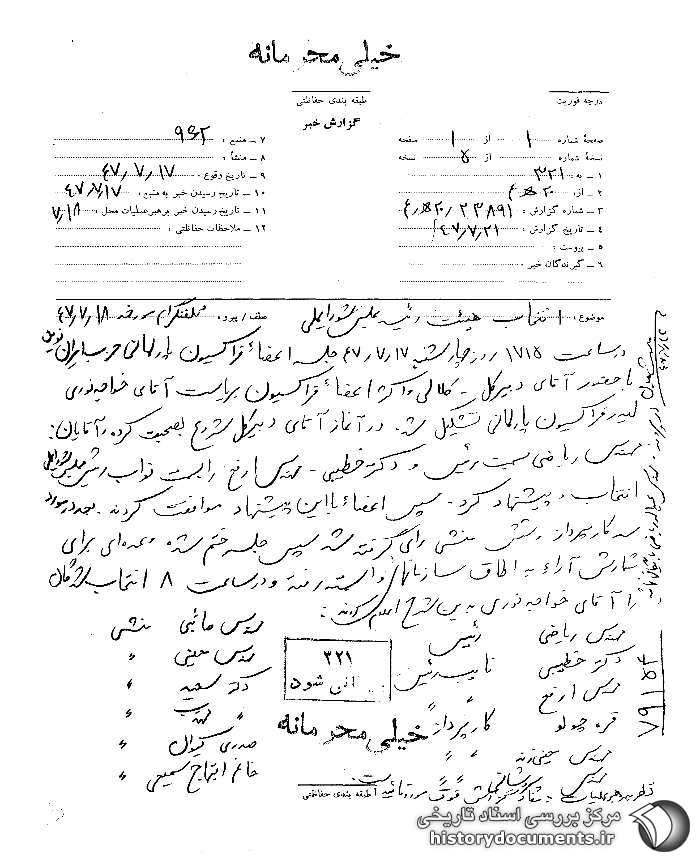 خیلی محرمانه
درجه فوریت
طبقه بندی حفاظتی
گزارش خبر
صفحهٔ شماره ۱ از ۱ صفحه
نسخهٔ شماره از ۵ نسخه
۱ ـ به ۳۲۱
۲ ـ از ۲۰ ه‍ ۴
۳ ـ شماره گزارش ۲۳۸۹۱ / ۲۰ ه‍ ۴
۴ ـ تاریخ گزارش ۴۷/۷/۲۱
۵ ـ پیوست :
۶ ـ گیرندگان خبر :
۷ ـ منبع :
۸ ـ منشأ :
۹ ـ تاریخ وقوع ۴۷/۷/۱۷
۱۰ ـ تاریخ رسیدن خبر به منبع ۴۷/۷/۱۷
۱۱ ـ تاریخ رسیدن خبر برهبر عملیات محل ۷/۱۸
۱۲ ـ ملاحظات حفاظتی :
موضوع : انتخاب هیئت رئیسه مجلس شورایملی
عطف / پیرو : تلفنگرام مورخه ۴۷/۷/۱۸
درساعت ۱۷۱۵ روز چهارشنبه ۴۷/۷/۱۷ جلسه اعضاء فراکسیون پارلمانی حزب ایران نوین
با حضور آقای دبیرکل - کلالی و اکثر اعضاء فراکسیون بریاست آقای خواجه نوری
لیدر فراکسیون پارلمانی تشکیل شد. در آغاز آقای دبیرکل شروع بصحبت کرده و آقایان :
مهندس ریاضی بسمت رئیس و دکتر خطیبی - مهندس ارفع را بسمت نواب رئیس مجلس شورایملی
انتخاب و پیشنهاد کرد - سپس اعضاء با این پیشنهاد موافقت کردند. بعد در مورد
سه کارپرداز و شش منشی رأی گرفته شد سپس جلسه ختم شده و عده‌ای برای
شمارش آراء به اطاق سازمانهای وابسته رفته و درساعت ۸ انتخاب شدگان
را آقای خواجه نوری به این شرح اعلام کردند :
مهندس ریاضی رئیس مهندس صائبی منشی
دکتر خطیبی نایب رئیس مهندس معینی "
مهندس ارفع " " دکتر سعید "
قره چولو کارپرداز "
مهندس معینی زند " " صدری کیوان "
مهندس خانم ابتهاج سمیعی "
۳۲۱
شود
خیلی محرمانه
مورد تائید است.
طبقه بندی حفاظتی
۷۹۱۵۴
مرکز بررسی اسناد تاریخی
historydocuments.ir